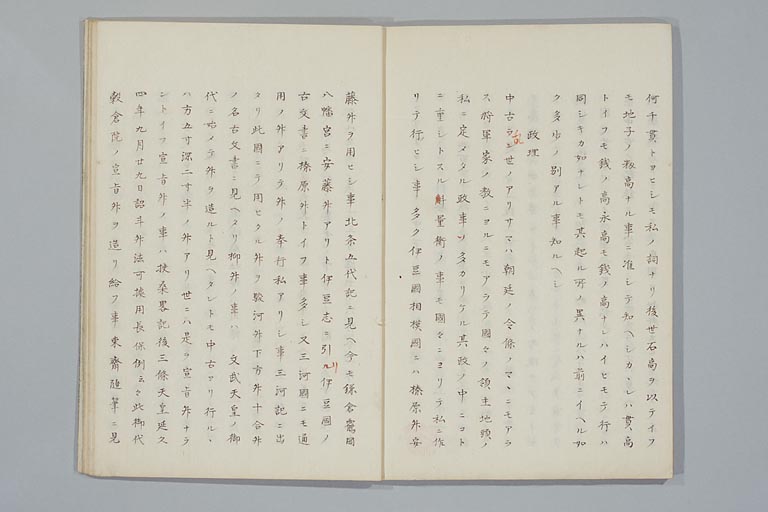 何千貫トヨヒシモ私ノ詞ナリ後世石高ヲ以テイフ
モ地子ノ籾高ナル事ニ准シテ知ヘシカヽレハ貫高
トイフモ銭ノ高永高モ銭ノ高ナレハイヒモテ行ハ
同シキカ如ナレトモ其起ル所ノ異ナルハ前ニイヘル如
ク多少ノ別アル事知ルヘシ
政理
中古乱世ノアリサマハ朝廷ノ令條ノマヽニモアラ
ス将軍家ノ教ニヨルニモアラテ國々ノ領主地頭ノ
私ニ定メタル政事ソ多カリケル其政ノ中ニコト
ニ重シトスル斛量衡ノ事モ國々ニヨリテ私ニ作
リテ行ヒシ事多ク伊豆國相模國ニハ榛原舛安
藤舛ヲ用ヒシ事北条五代記ニ見ヘ今モ鎌倉鶴岡
八幡宮ニ安藤舛アリト伊豆志ニ引リ伊豆國ノ
古文書ニ榛原舛トイフ事多シ又三河國ニモ通
用ノ舛アリテ舛ノ奉行私アリシ事三河記ニ出
タリ此國ニテ用ヒタル舛ヲ駿河舛下方舛十合舛
ノ名古文書ニ見ヘタリ柳舛ノ事ハ 文武天皇ノ御
代ニ始メテ舛ヲ造ルト見ヘタレトモ中古アリ行ルヽ
ハ方五寸深二寸半ノ舛アリ世ニハ是ヲ宣旨舛ナラ
ントイフ宣旨舛ノ事ハ扶桑畧記後三條天皇延久
四年九月廿九日詔斗舛法可據用長保例云々此御代
穀倉院ノ宣旨舛ヲ造リ給フ事東齋随筆ニ見